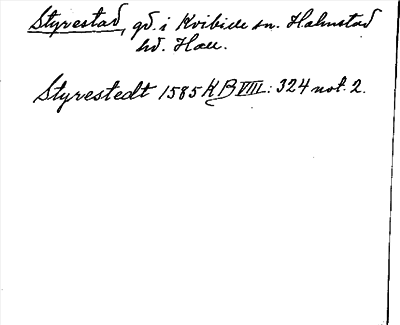 Styrestad, gd. i Kvibille sn. Halmstad
hd. Hall.
Styrestedt 1585 KB VIII: 324 not. 2.